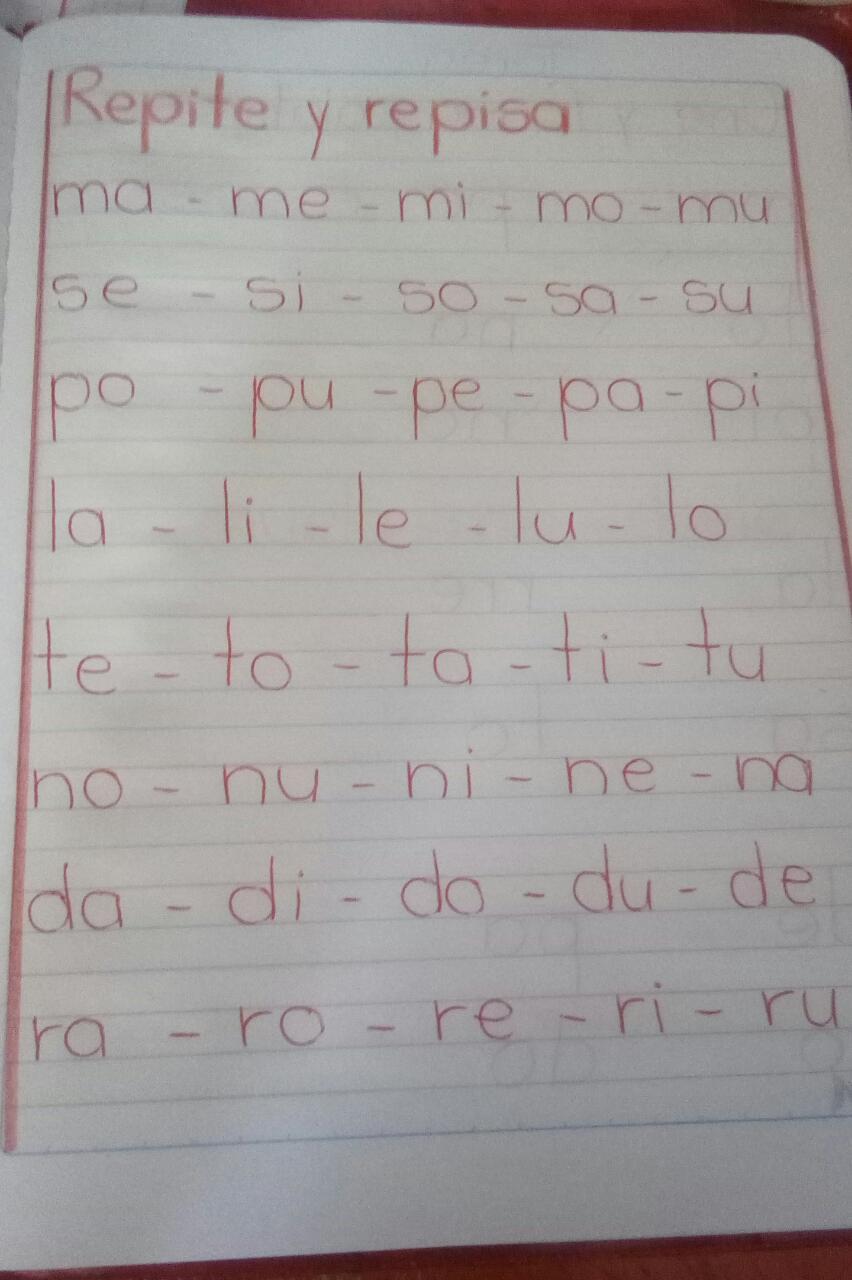 Repite y repisa
ma - me - mi - mo - mu
se - si - so - sa - su
po - pu - pe - pa - pi
la - li - le - lu - lo
te - to - ta - ti - tu
no - nu - ni - ne - na
da - di - do - du - de
ra - ro - re - ri - ru